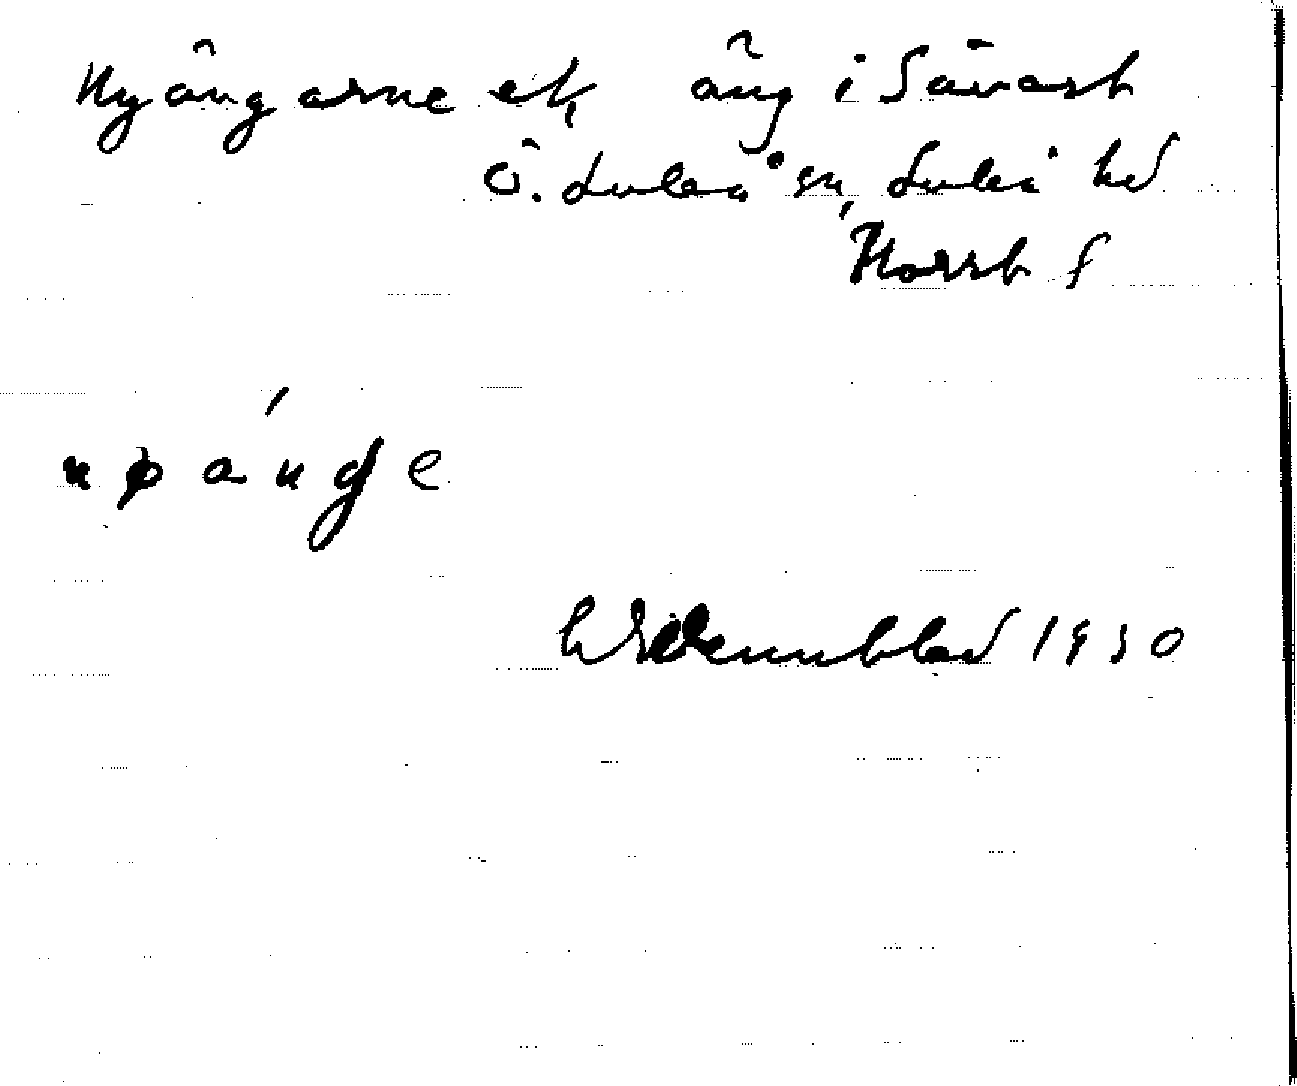 Nyängarne ek, äng i Sävast
Ö. Luleå sn, Luleå hd
Norrb f
nøánge
Wennblad 1930